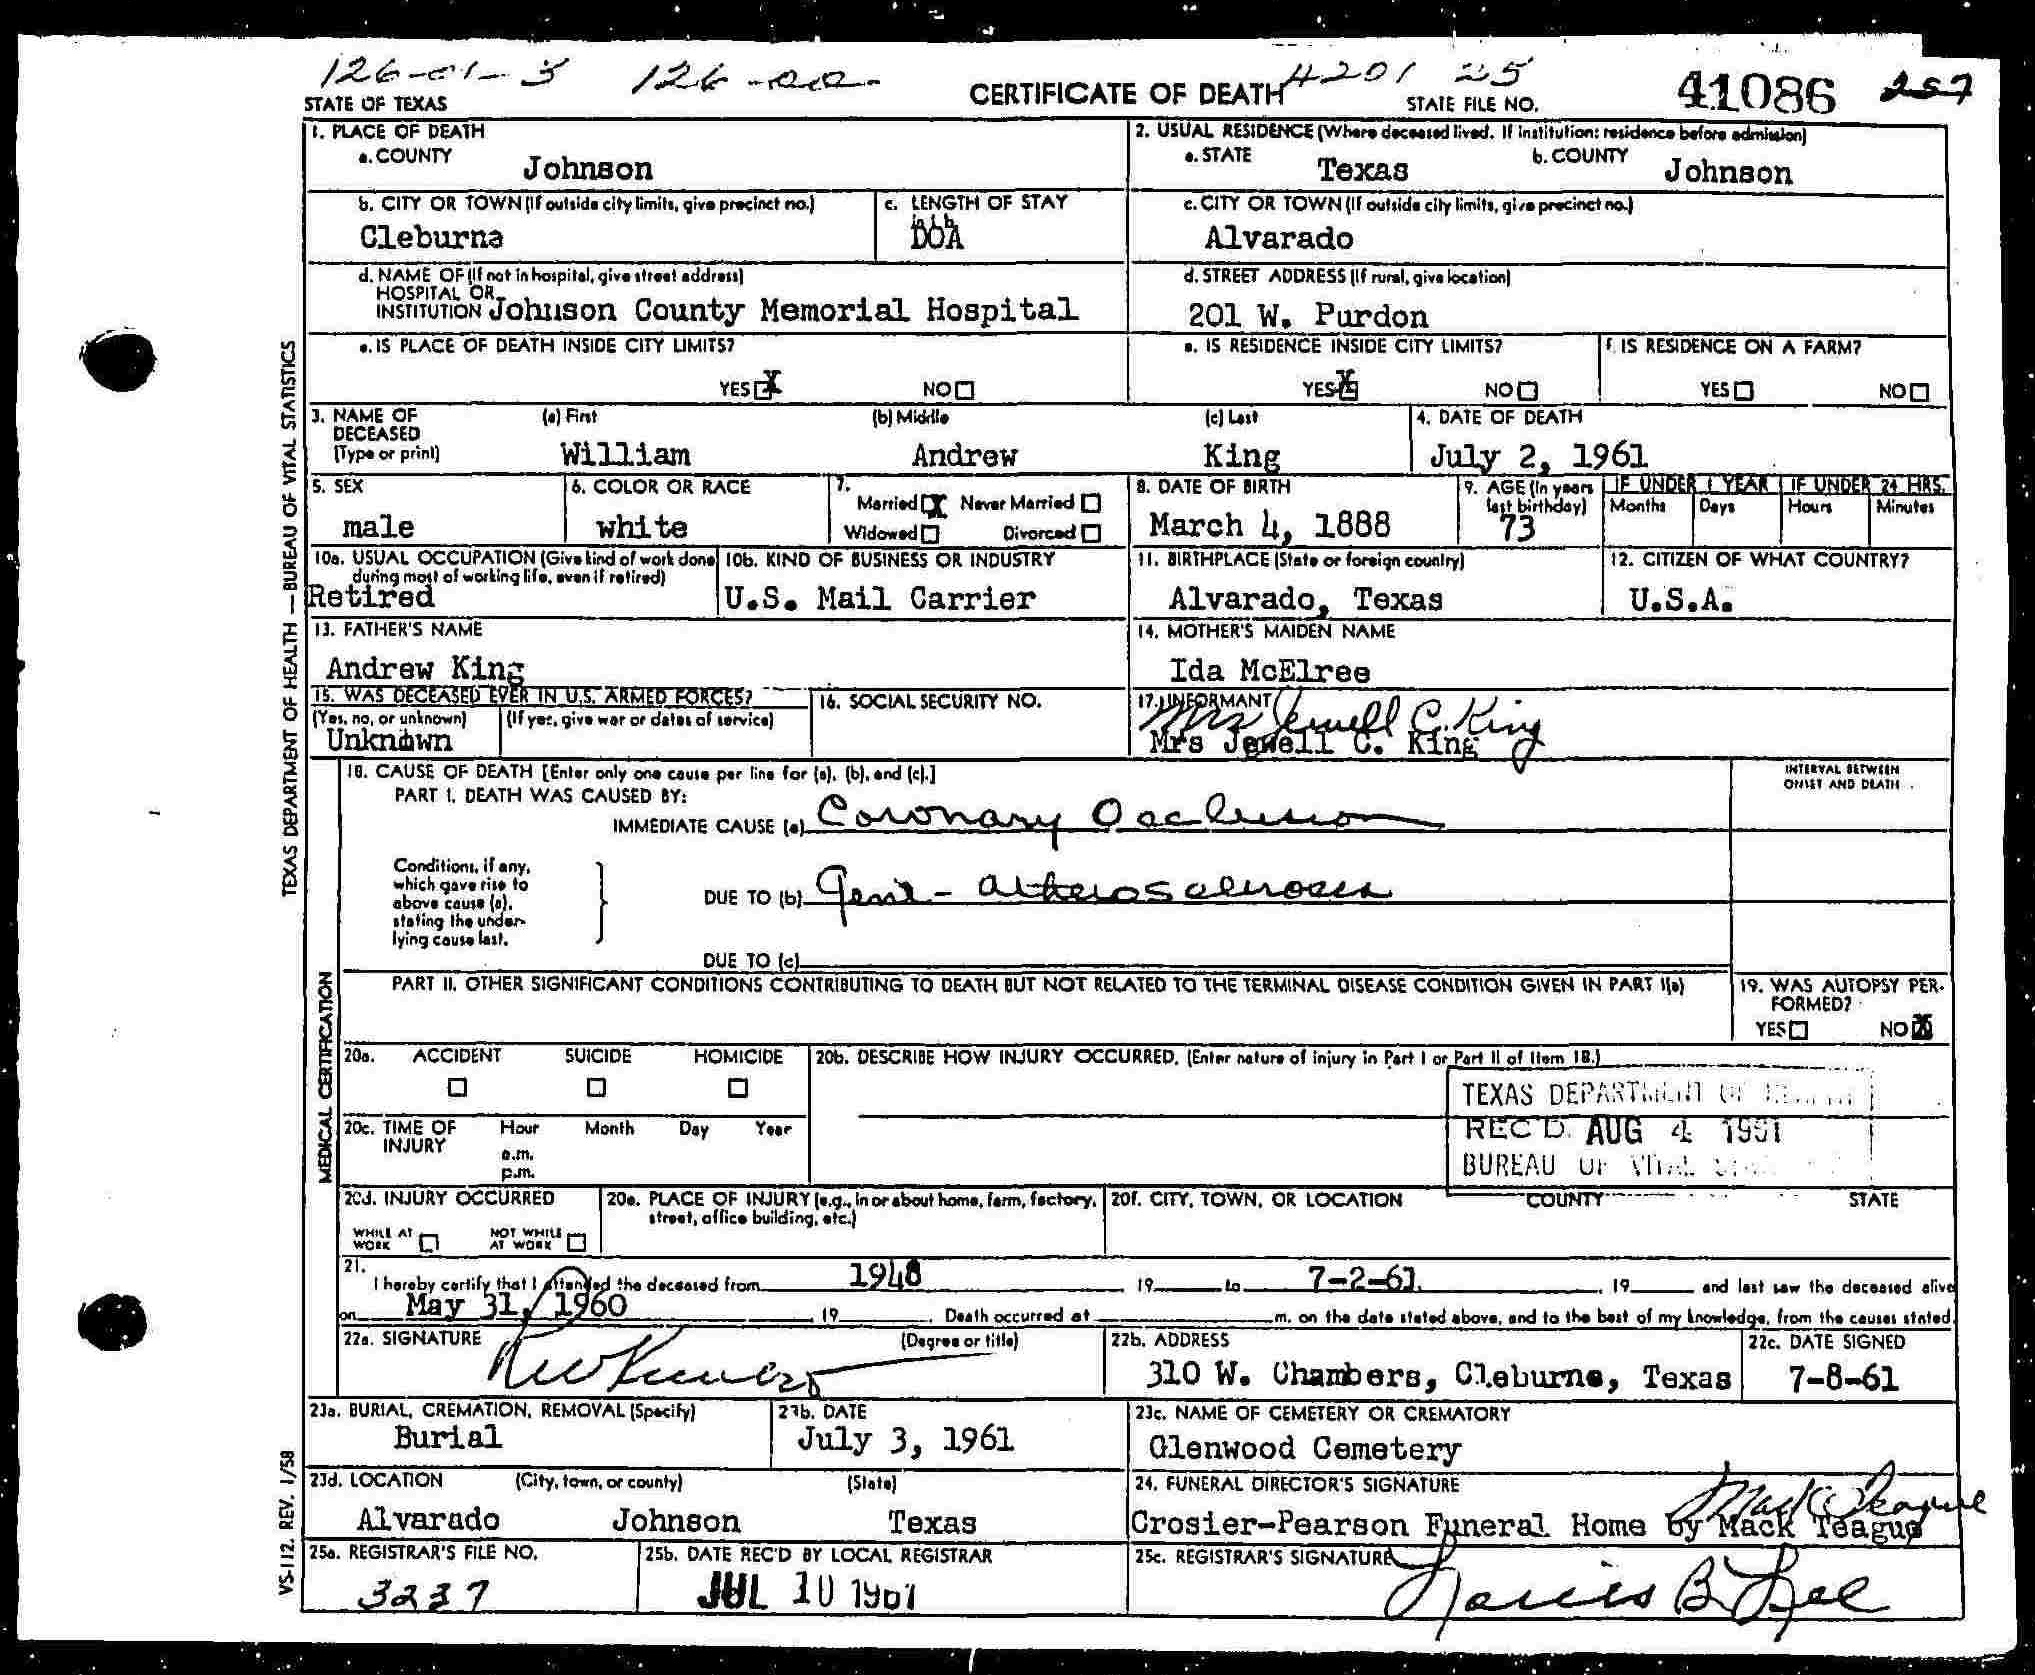 126-01-3 126-00- 4201 25 257
STATE OF TEXAS CERTIFICATE OF DEATH STATE FILE NO. 41086
1. PLACE OF DEATH
a. COUNTY
Johnson
2. USUAL RESIDENCE (Where deceased lived. If institution: residence before admission)
a. STATE b. COUNTY
Texas Johnson
b. CITY OR TOWN (If outside city limits, give precinct no.)
Cleburne
c. LENGTH OF STAY
DOA
c. CITY OR TOWN (If outside city limits, give precinct no.)
Alvarado
d. NAME OF (If not in hospital, give street address)
HOSPITAL OR
INSTITUTION Johnson County Memorial Hospital
d. STREET ADDRESS (If rural, give location)
201 W. Purdon
e. IS PLACE OF DEATH INSIDE CITY LIMITS?
YES X NO
e. IS RESIDENCE INSIDE CITY LIMITS?
YES X NO
f. IS RESIDENCE ON A FARM?
YES NO
3. NAME OF (a) First (b) Middle (c) Last
DECEASED
(Type or print) William Andrew King
4. DATE OF DEATH
July 2, 1961
5. SEX
male
6. COLOR OR RACE
white
7.
Married X Never Married
Widowed Divorced
8. DATE OF BIRTH
March 4, 1888
9. AGE (In years
last birthday)
73
IF UNDER 1 YEAR IF UNDER 24 HRS.
Months Days Hours Minutes
10a. USUAL OCCUPATION (Give kind of work done
during most of working life, even if retired)
Retired
10b. KIND OF BUSINESS OR INDUSTRY
U.S. Mail Carrier
11. BIRTHPLACE (State or foreign country)
Alvarado, Texas
12. CITIZEN OF WHAT COUNTRY?
U.S.A.
13. FATHER'S NAME
Andrew King
14. MOTHER'S MAIDEN NAME
Ida McElree
15. WAS DECEASED EVER IN U.S. ARMED FORCES?
(Yes, no, or unknown) (If yes, give war or dates of service)
Unknown
16. SOCIAL SECURITY NO.
17. INFORMANT
Mrs Jewell C. King
Mrs Jewell C. King
18. CAUSE OF DEATH [Enter only one cause per line for (a), (b), and (c).]
PART I. DEATH WAS CAUSED BY:
IMMEDIATE CAUSE (a) Coronary Occlusion
INTERVAL BETWEEN
ONSET AND DEATH
Conditions, if any,
which gave rise to
above cause (a),
stating the under-
lying cause last.
DUE TO (b) Gen'l - atherosclerosis
DUE TO (c)
PART II. OTHER SIGNIFICANT CONDITIONS CONTRIBUTING TO DEATH BUT NOT RELATED TO THE TERMINAL DISEASE CONDITION GIVEN IN PART I(a)
19. WAS AUTOPSY PER-
FORMED?
YES NO X
20a. ACCIDENT SUICIDE HOMICIDE
20b. DESCRIBE HOW INJURY OCCURRED. (Enter nature of injury in Part I or Part II of Item 18.)
TEXAS DEPARTMENT OF HEALTH
REC'D. AUG 4 1961
BUREAU OF VITAL
20c. TIME OF Hour Month Day Year
INJURY
a.m.
p.m.
20d. INJURY OCCURRED
WHILE AT
WORK
NOT WHILE
AT WORK
20e. PLACE OF INJURY (e.g., in or about home, farm, factory,
street, office building, etc.)
20f. CITY, TOWN, OR LOCATION COUNTY STATE
21.
I hereby certify that I attended the deceased from 1948 19 to 7-2-61 , 19 and last saw the deceased alive
on May 31, 1960 , 19 . Death occurred at m. on the date stated above, and to the best of my knowledge, from the causes stated.
22a. SIGNATURE (Degree or title)
22b. ADDRESS
310 W. Chambers, Cleburne, Texas
22c. DATE SIGNED
7-8-61
23a. BURIAL, CREMATION, REMOVAL (Specify)
Burial
23b. DATE
July 3, 1961
23c. NAME OF CEMETERY OR CREMATORY
Glenwood Cemetery
23d. LOCATION (City, town, or county) (State)
Alvarado Johnson Texas
24. FUNERAL DIRECTOR'S SIGNATURE
Mack Teague
Crosier-Pearson Funeral Home by Mack Teague
25a. REGISTRAR'S FILE NO.
3237
25b. DATE REC'D BY LOCAL REGISTRAR
JUL 10 1961
25c. REGISTRAR'S SIGNATURE
B. Lee
TEXAS DEPARTMENT OF HEALTH — BUREAU OF VITAL STATISTICS
MEDICAL CERTIFICATION
VS-112. REV. 1/58